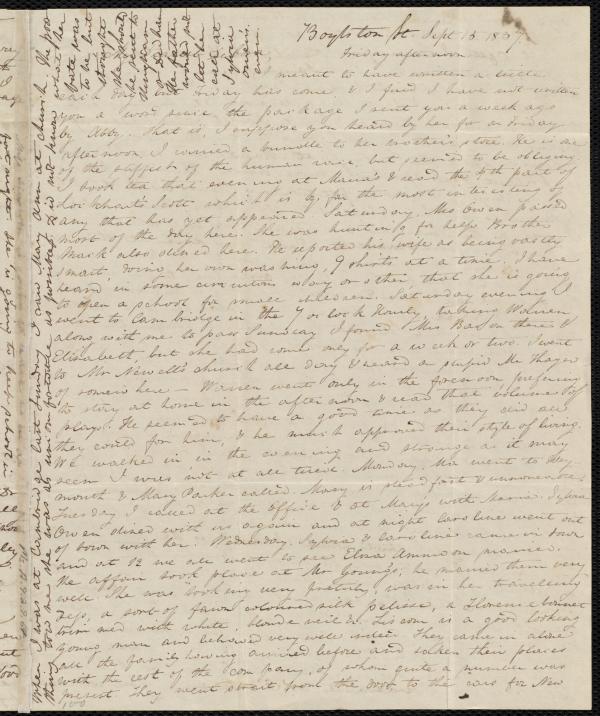 Boylston St. Sept 15 1837
Friday afternoon
meant to have written a little
each day but Friday has come & I find I have not written
you a word since the package I sent you a week ago
by Abby. That is, I suppose you heard by her for on Friday
afternoon I carried a bundle to her brother's store. He is one
of the stiffest of the human race, but seemed to be obliging
I took tea that evening at Maria's & read the 4th part of
Lockhart's Scott which is by far the most interesting of
any that has yet appeared Saturday, Mrs Owen passed
most of the day here. She was hunting for help. Brother
Mark also dined here. He reported his wife as being vastly
smart, doing her own washing, 9 shirts at a time. I have
heard in some circuitous way or other, that she is going
to open a school for small children. Saturday evening I
went to Cambridge in the 7 o clock Hourly, taking
along with me to pass Sunday I found Mrs Bacon there &
Elisabeth, but she had come only for a week or two. I went
to Mr Newell's church all day & heard a stupid Mr Thayer
of somewhere — Warren went only in the forenoon, preferring
to stay at home in the afternoon & read that volume of
plays. He seemed to have a good time as they did all
they could for him, & he much approved their style of living.
We walked in in the evening and strange as it may
seem I was not at all tired. Monday, Ma went to Wey-
mouth & Mary Parker called. Mary is steadfast &
Tuesday I called at the office & at Mary's with Maria. Sylvia
Owen dined with us again and at night Caroline went out
of town with her. Wednesday. Sylvia & Caroline came in town
and at 12 we all went to see Eliza Ammon married.
The affair took place at Mr Young's; he married them very
well. She was looking very prettily, was in her travelling
dress, a sort of fawn coloured silk pelisse, a Florence bonnet
trimmed with white, blonde veil &c. Liscom is a good looking
young man and behaved very well indeed. They came in alone
all the family having arrived before and taken their places
with the rest of the company, of whom quite a number was
present. They went strait from the door to the cars for New
When I was at Cambridge last Sunday I saw Mary Ann at church. The poor
thing told me she was as uncomfortable as possible. Did not know what her
fate was
to be, but
thought
she should
be sent to
Hingham
or did her
father
would not
let her
end at
Sylvia